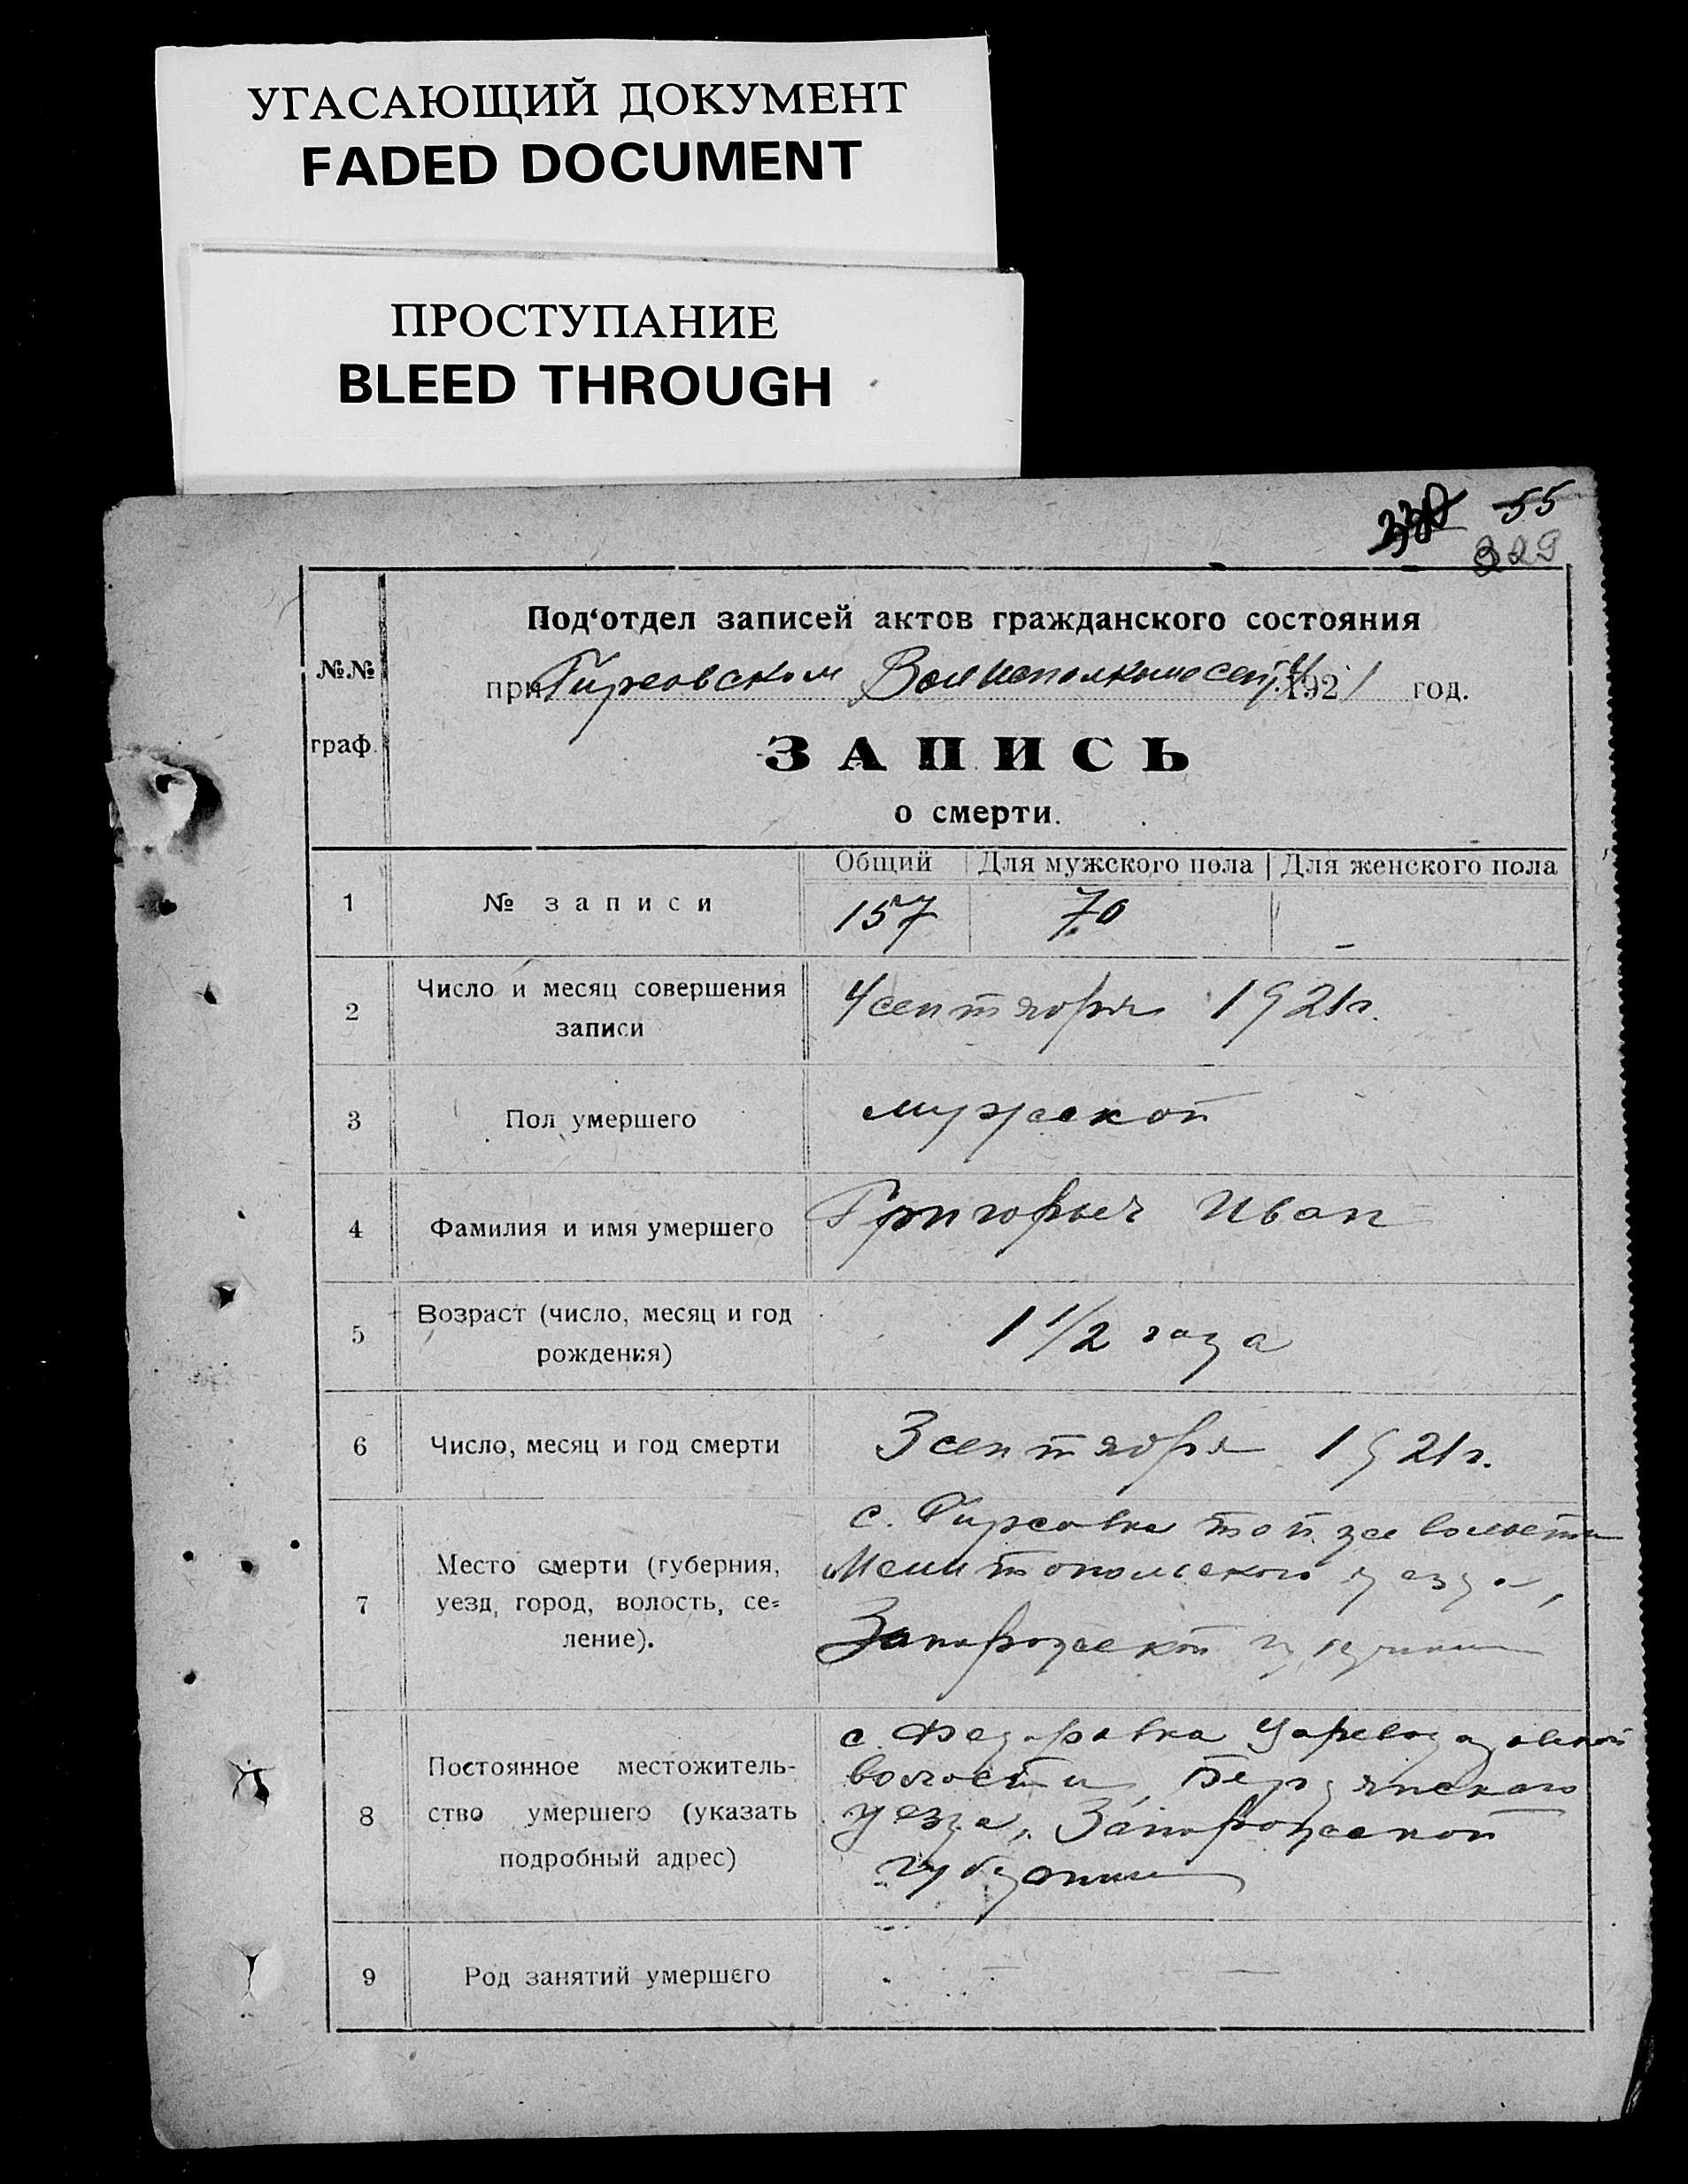 УГАСАЮЩИЙ ДОКУМЕНТ
FADED DOCUMENT
ПРОСТУПАНИЕ
BLEED THROUGH
55
329
№№ граф.
Под‘отдел записей актов гражданского состояния
при Гирсовском 1921 год.
ЗАПИСЬ
о смерти.
Общий Для мужского пола Для женского пола
1 № записи 157 70 –
2 Число и месяц совершения записи 4 сентября 1921 г.
3 Пол умершего мужской
4 Фамилия и имя умершего Григорьев Иван
5 Возраст (число, месяц и год рождения) 1 1/2 года
6 Число, месяц и год смерти 3 сентября 1921 г.
7 Место смерти (губерния, уезд, город, волость, се=
ление).
с. Гирсовка той же волости
Мелитопольского уезда,
Запорожской губернии
8 Постоянное местожитель-
ство умершего (указать
подробный адрес)
с. Федоровка
волости, Бердянского
уезда, Запорожской
губернии
9 Род занятий умершего — —